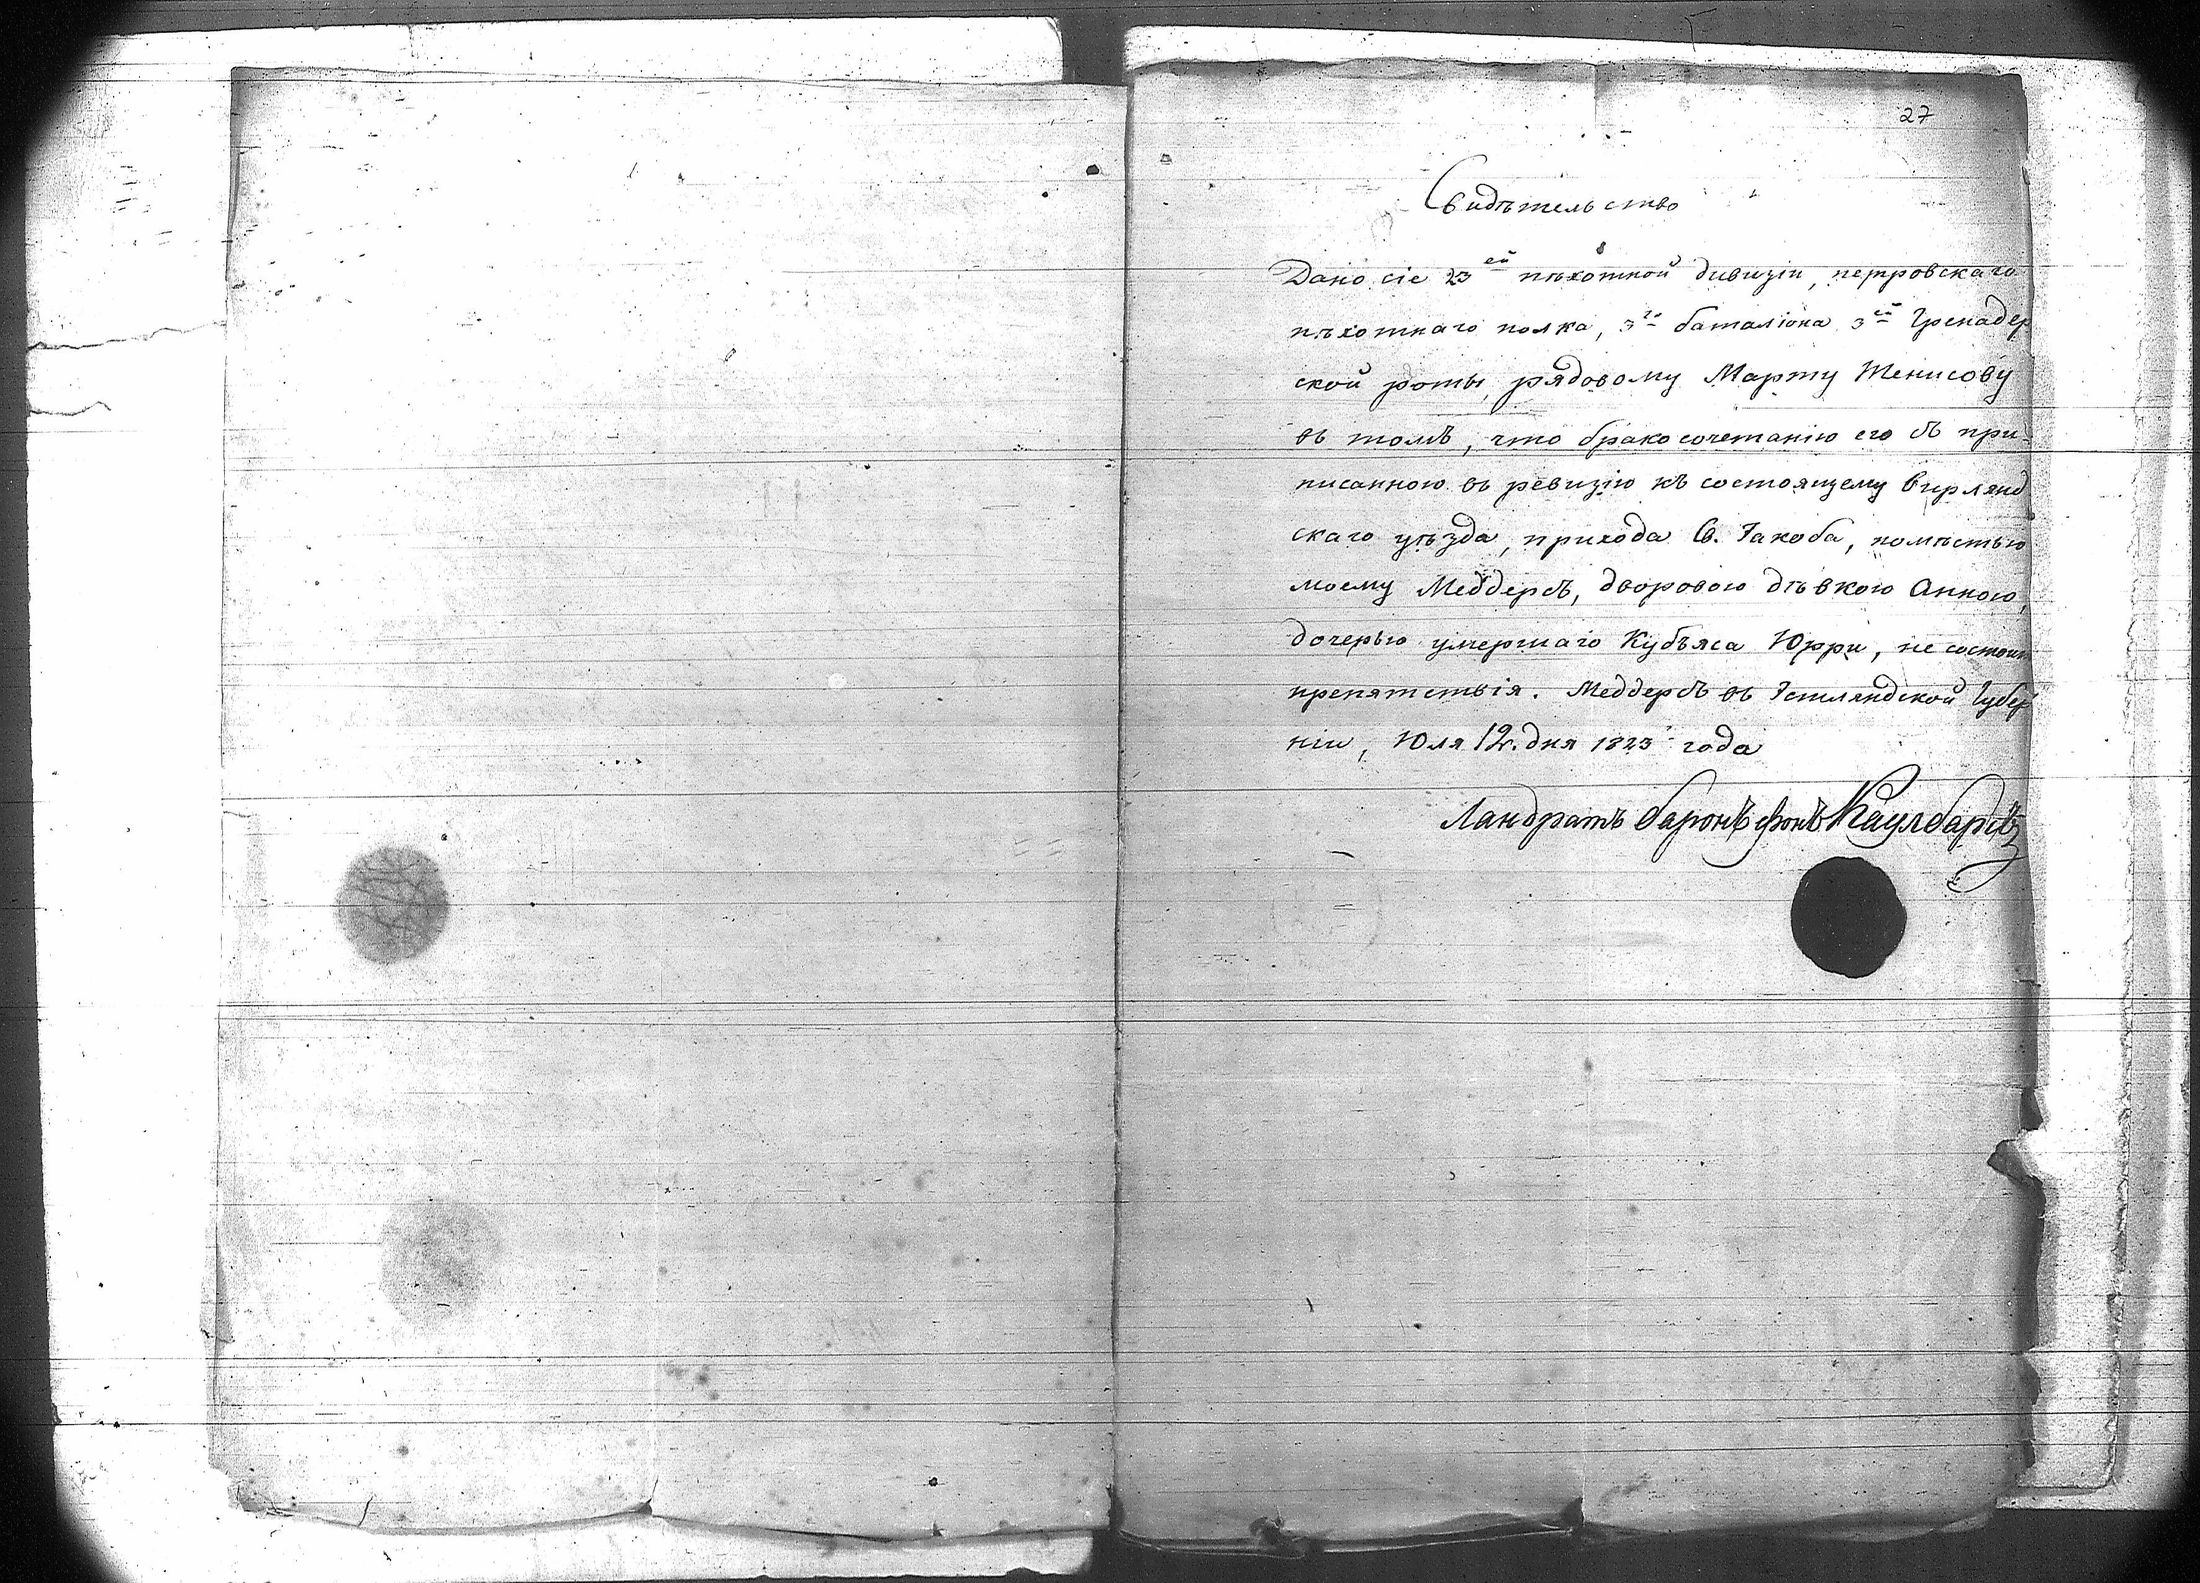 27
Свидѣтельство
Дано сіе 23ей пѣхотной дивизіи, петровскаго
пѣхотнаго полка, 3го баталіона 3ей Гренадер
ской роты, рядовому Марту Тенисову
въ томъ, что бракосочетанію его съ при-
писанною въ ревизію къ состоящему Вирлянд
скаго уѣзда, прихода Св. Іакоба, помѣстью
моему Меддерсъ, дворовою дѣвкою Анною,
дочерью умершаго Кубъяса Юрри, не состоит
препятствія. Меддерсъ въ Эстляндской Губер
ніи, Юля 12. дня 1823 года
Ландратъ баронъ фонъ Каулбарсъ